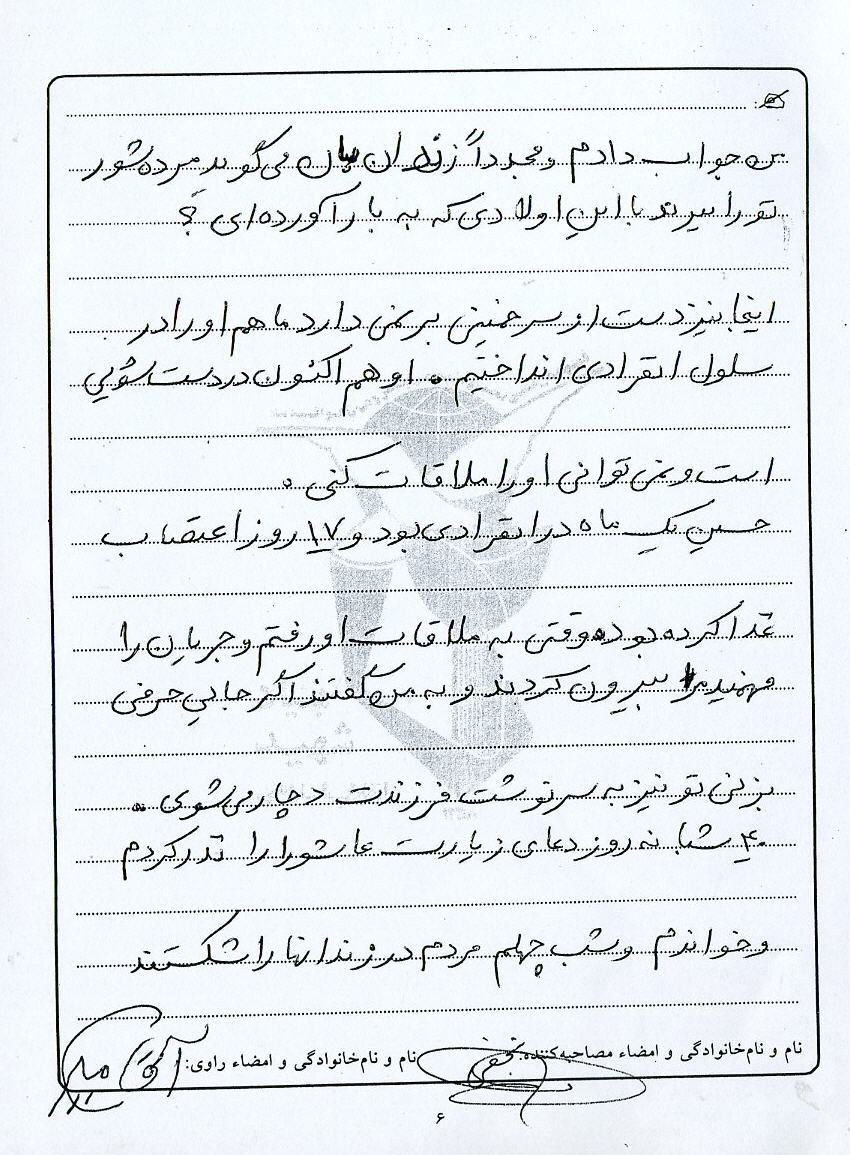 من جواب دادم و مجدداً زندان بان می گوید مرده شور
تو را ببرند با این اولادی که به بار آورده ای ؟
اینجا نیز دست از سر خمینی بر نمی دارد ما هم او را در
سلول انفرادی انداختیم . او هم اکنون در دست شویی
است و نمی توانی او را ملاقات کنی .
حسین یک ماه در انفرادی بود و ۱۷ روز اعتصاب
غذا کرده بود وقتی به ملاقات او رفتم و جریان را
فهمید مرا بیرون کردند و به من گفتند اگر جایی حرفی
بزنی تو نیز به سرنوشت فرزندت دچار می شوی .
۴۰ شبانه روز دعای زیارت عاشورا را نذر کردم
و خواندم و شب چهلم مردم در زندانها را شکستند
نام و نام‌خانوادگی و امضاء مصاحبه‌کننده: نجفی
نام و نام‌خانوادگی و امضاء راوی:
۶